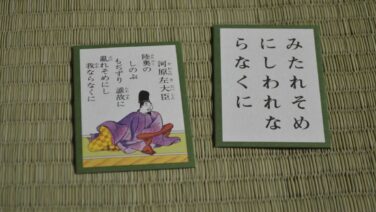 河原左大臣
陸奥の
しのぶ
もぢずり 誰故に
亂れそめにし
我ならなくに
みたれそめ
にしわれな
らなくに